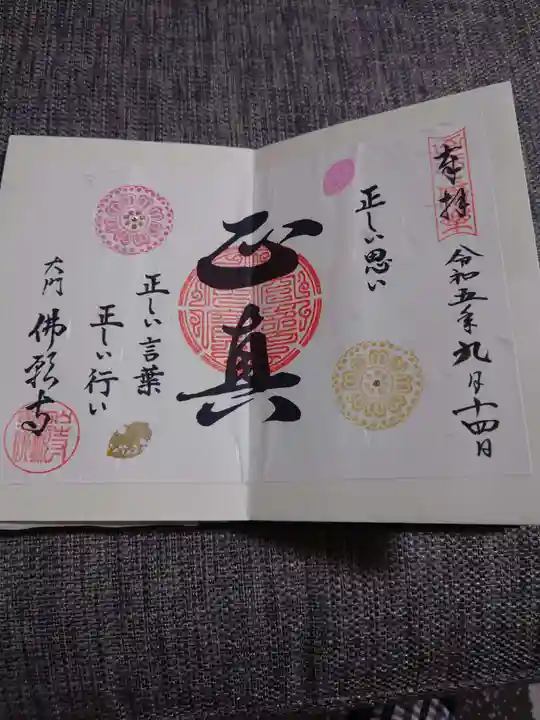 奉拝
令和五年九月十四日
正しい思い
正真
正しい言葉
正しい行い
大門 佛願寺